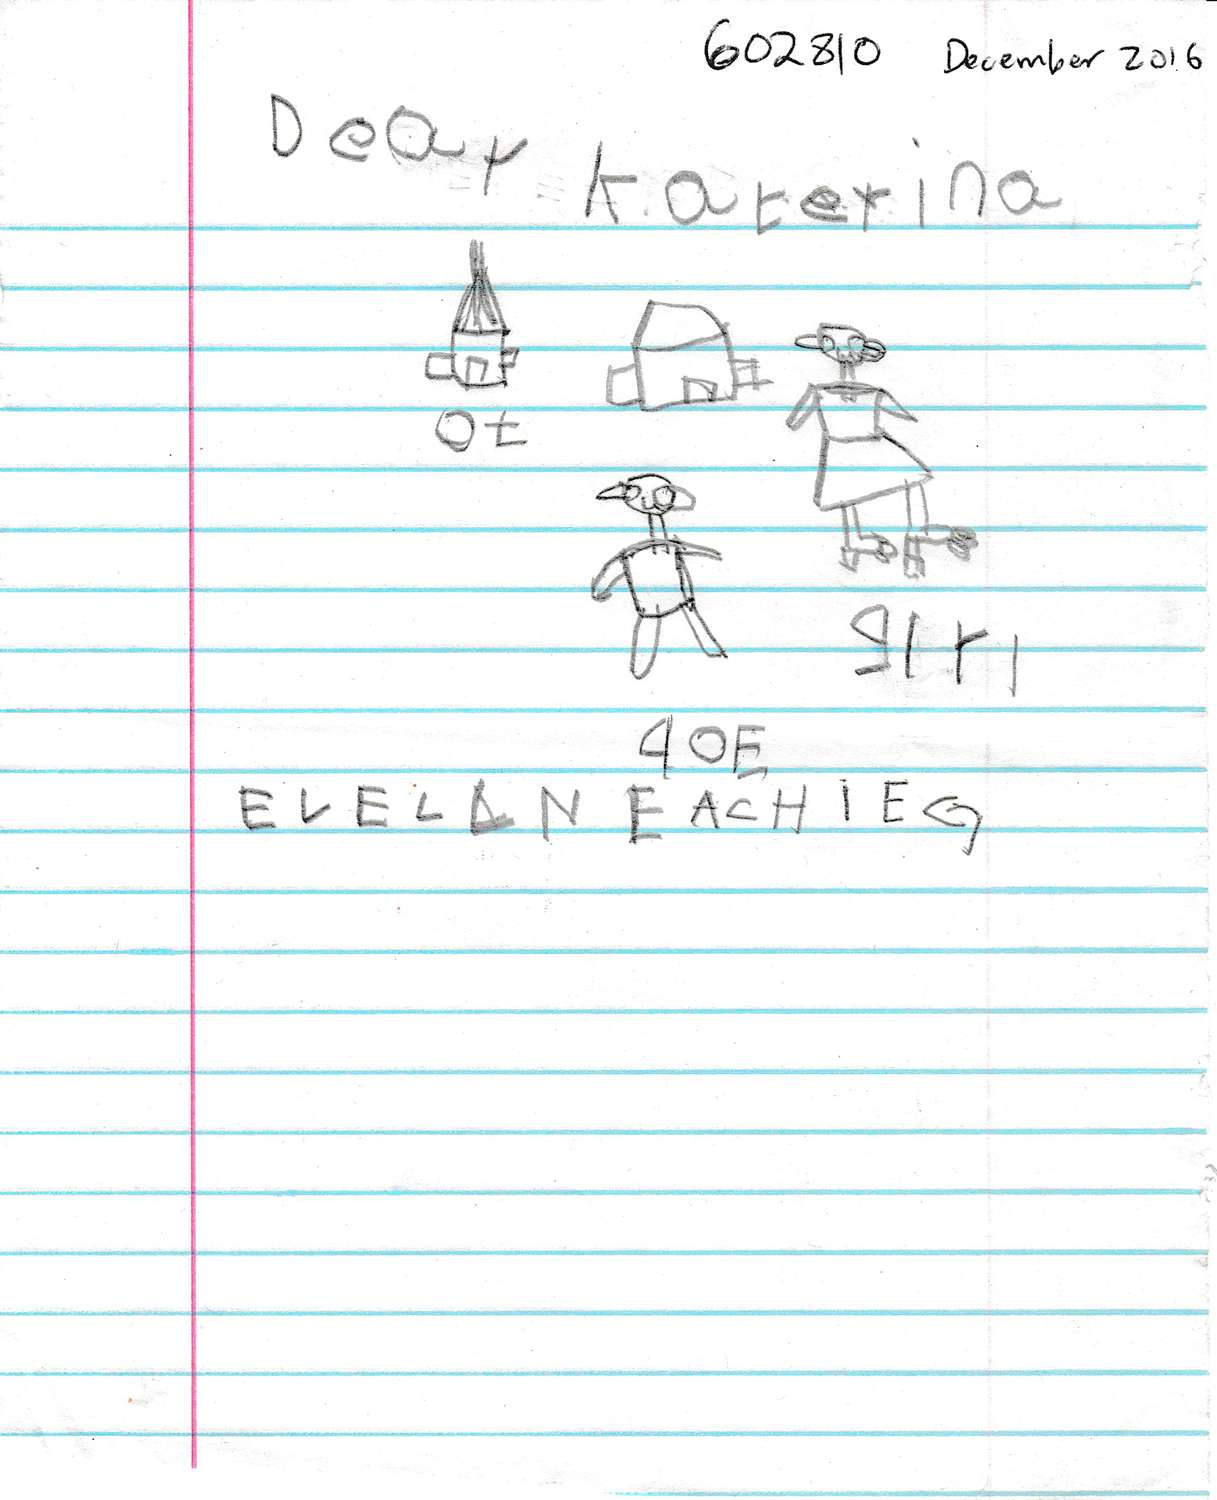 602810 December 2016
Dear Katerina
Ot
girl
EVELLN EACHIEG